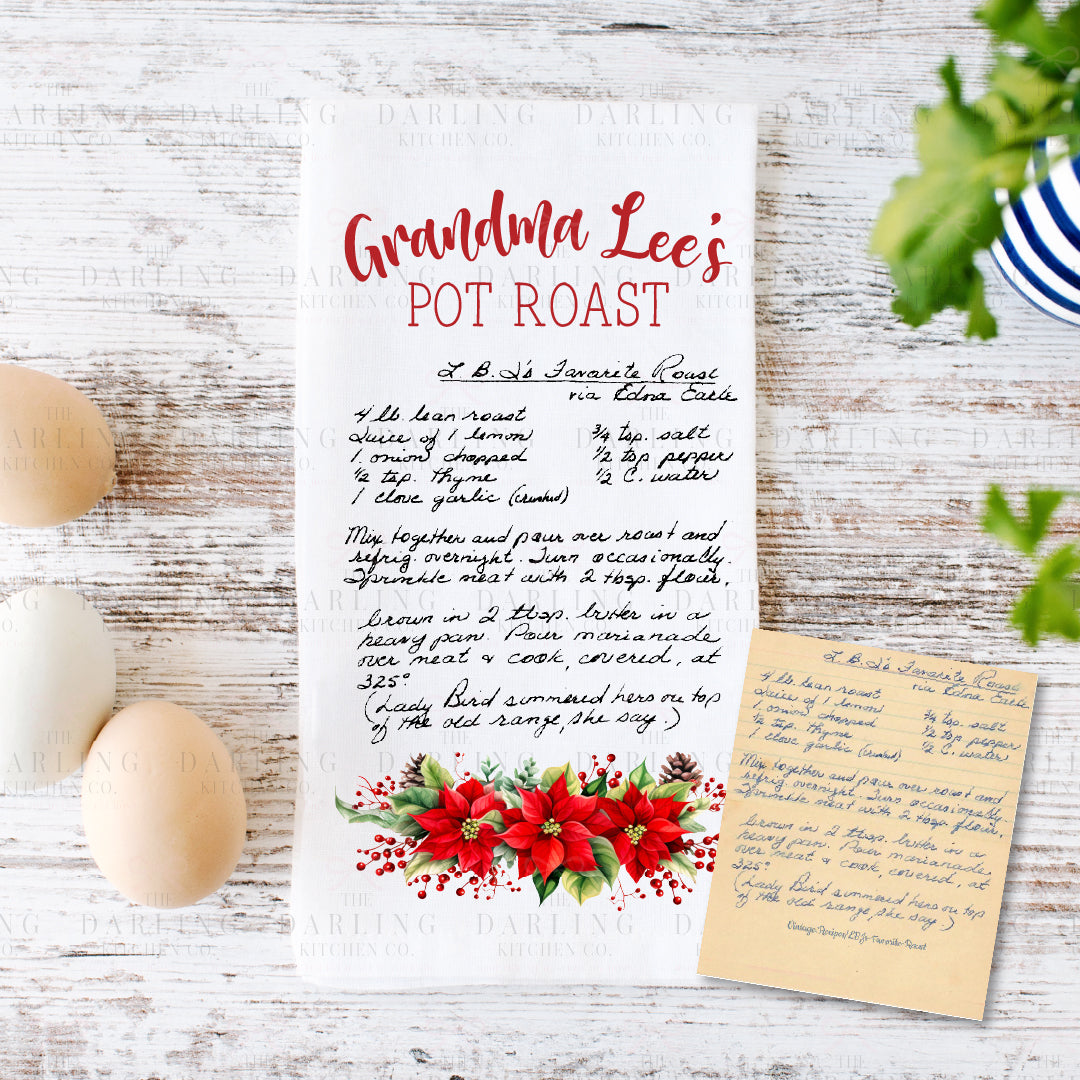 Grandma Lee's
POT ROAST
L. B. J's Favorite Roast
via Edna Earle
4 lb. lean roast
Juice of 1 lemon
1 onion chopped
½ tsp. thyme
1 clove garlic (crushed)
¾ tsp. salt
½ tsp pepper
½ C. water
Mix together and pour over roast and
refrig. overnight. Turn occasionally.
Sprinkle meat with 2 tbsp. flour,
brown in 2 tbsp. butter in a
heavy pan. Pour marianade
over meat & cook, covered, at
325°
(Lady Bird simmered hers on top
of the old range, she say.)
L. B. J's Favorite Roast
via Edna Earle
4 lb. lean roast
Juice of 1 lemon
1 onion chopped
½ tsp. thyme
1 clove garlic (crushed)
¾ tsp. salt
½ tsp pepper
½ C. water
Mix together and pour over roast and
refrig. overnight. Turn occasionally.
Sprinkle meat with 2 tbsp. flour,
brown in 2 tbsp. butter in a
heavy pan. Pour marianade
over meat & cook, covered, at
325°
(Lady Bird simmered hers on top
of the old range, she say.)
Vintage Recipes/LBJs Favorite Roast
THE
DARLING
KITCHEN CO.